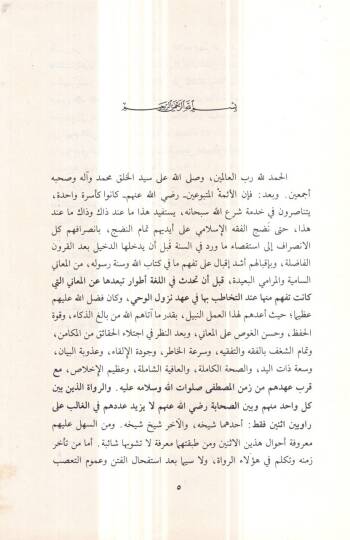 بسم الله الرحمن الرحيم
الحمد لله رب العالمين، وصلى الله على سيد الخلق محمد وآله وصحبه
أجمعين. وبعد: فإن الأئمة المتبوعين ـ رضي الله عنهم ـ كانوا كأسرة واحدة،
يتناصرون في خدمة شرع الله سبحانه، يستفيد هذا ما عند ذاك وذاك ما عند
هذا، حتى نضج الفقه الإسلامي على أيديهم تمام النضج، بانصرافهم كل
الانصراف إلى استقصاء ما ورد في السنة قبل أن يدخلها الدخيل بعد القرون
الفاضلة، وبإقبالهم أشد إقبال على تفهم ما في كتاب الله وسنة رسوله، من المعاني
السامية والمرامي البعيدة، قبل أن تحدث في اللغة أطوار تبعدها عن المعاني التي
كانت تفهم منها عند التخاطب بها في عهد نزول الوحي، وكان فضل الله عليهم
عظيما؛ حيث أعدهم لهذا العمل النبيل، بقدر ما آتاهم الله من بالغ الذكاء، وقوة
الحفظ، وحسن الغوص على المعاني، وبعد النظر في اجتلاء الحقائق من المكامن،
وتمام الشغف بالفقه والتفقيه، وسرعة الخاطر، وجودة الإلقاء، وعذوبة البيان،
وسعة ذات اليد، والصحة الكاملة، والعافية الشاملة، وعظيم الإخلاص، مع
قرب عهدهم من زمن المصطفى صلوات الله وسلامه عليه. والرواة الذين بين
كل واحد منهم وبين الصحابة رضي الله عنهم لا يزيد عددهم في الغالب على
راويين اثنين فقط: أحدهما شيخه، والآخر شيخ شيخه. ومن السهل عليهم
معروفة أحوال هذين الاثنين ومن طبقتهما معرفة لا تشوبها شائبة. أما من تأخر
زمنه وتكلم في هؤلاء الرواة، ولا سيما بعد استفحال الفتن وعموم التعصب
٥